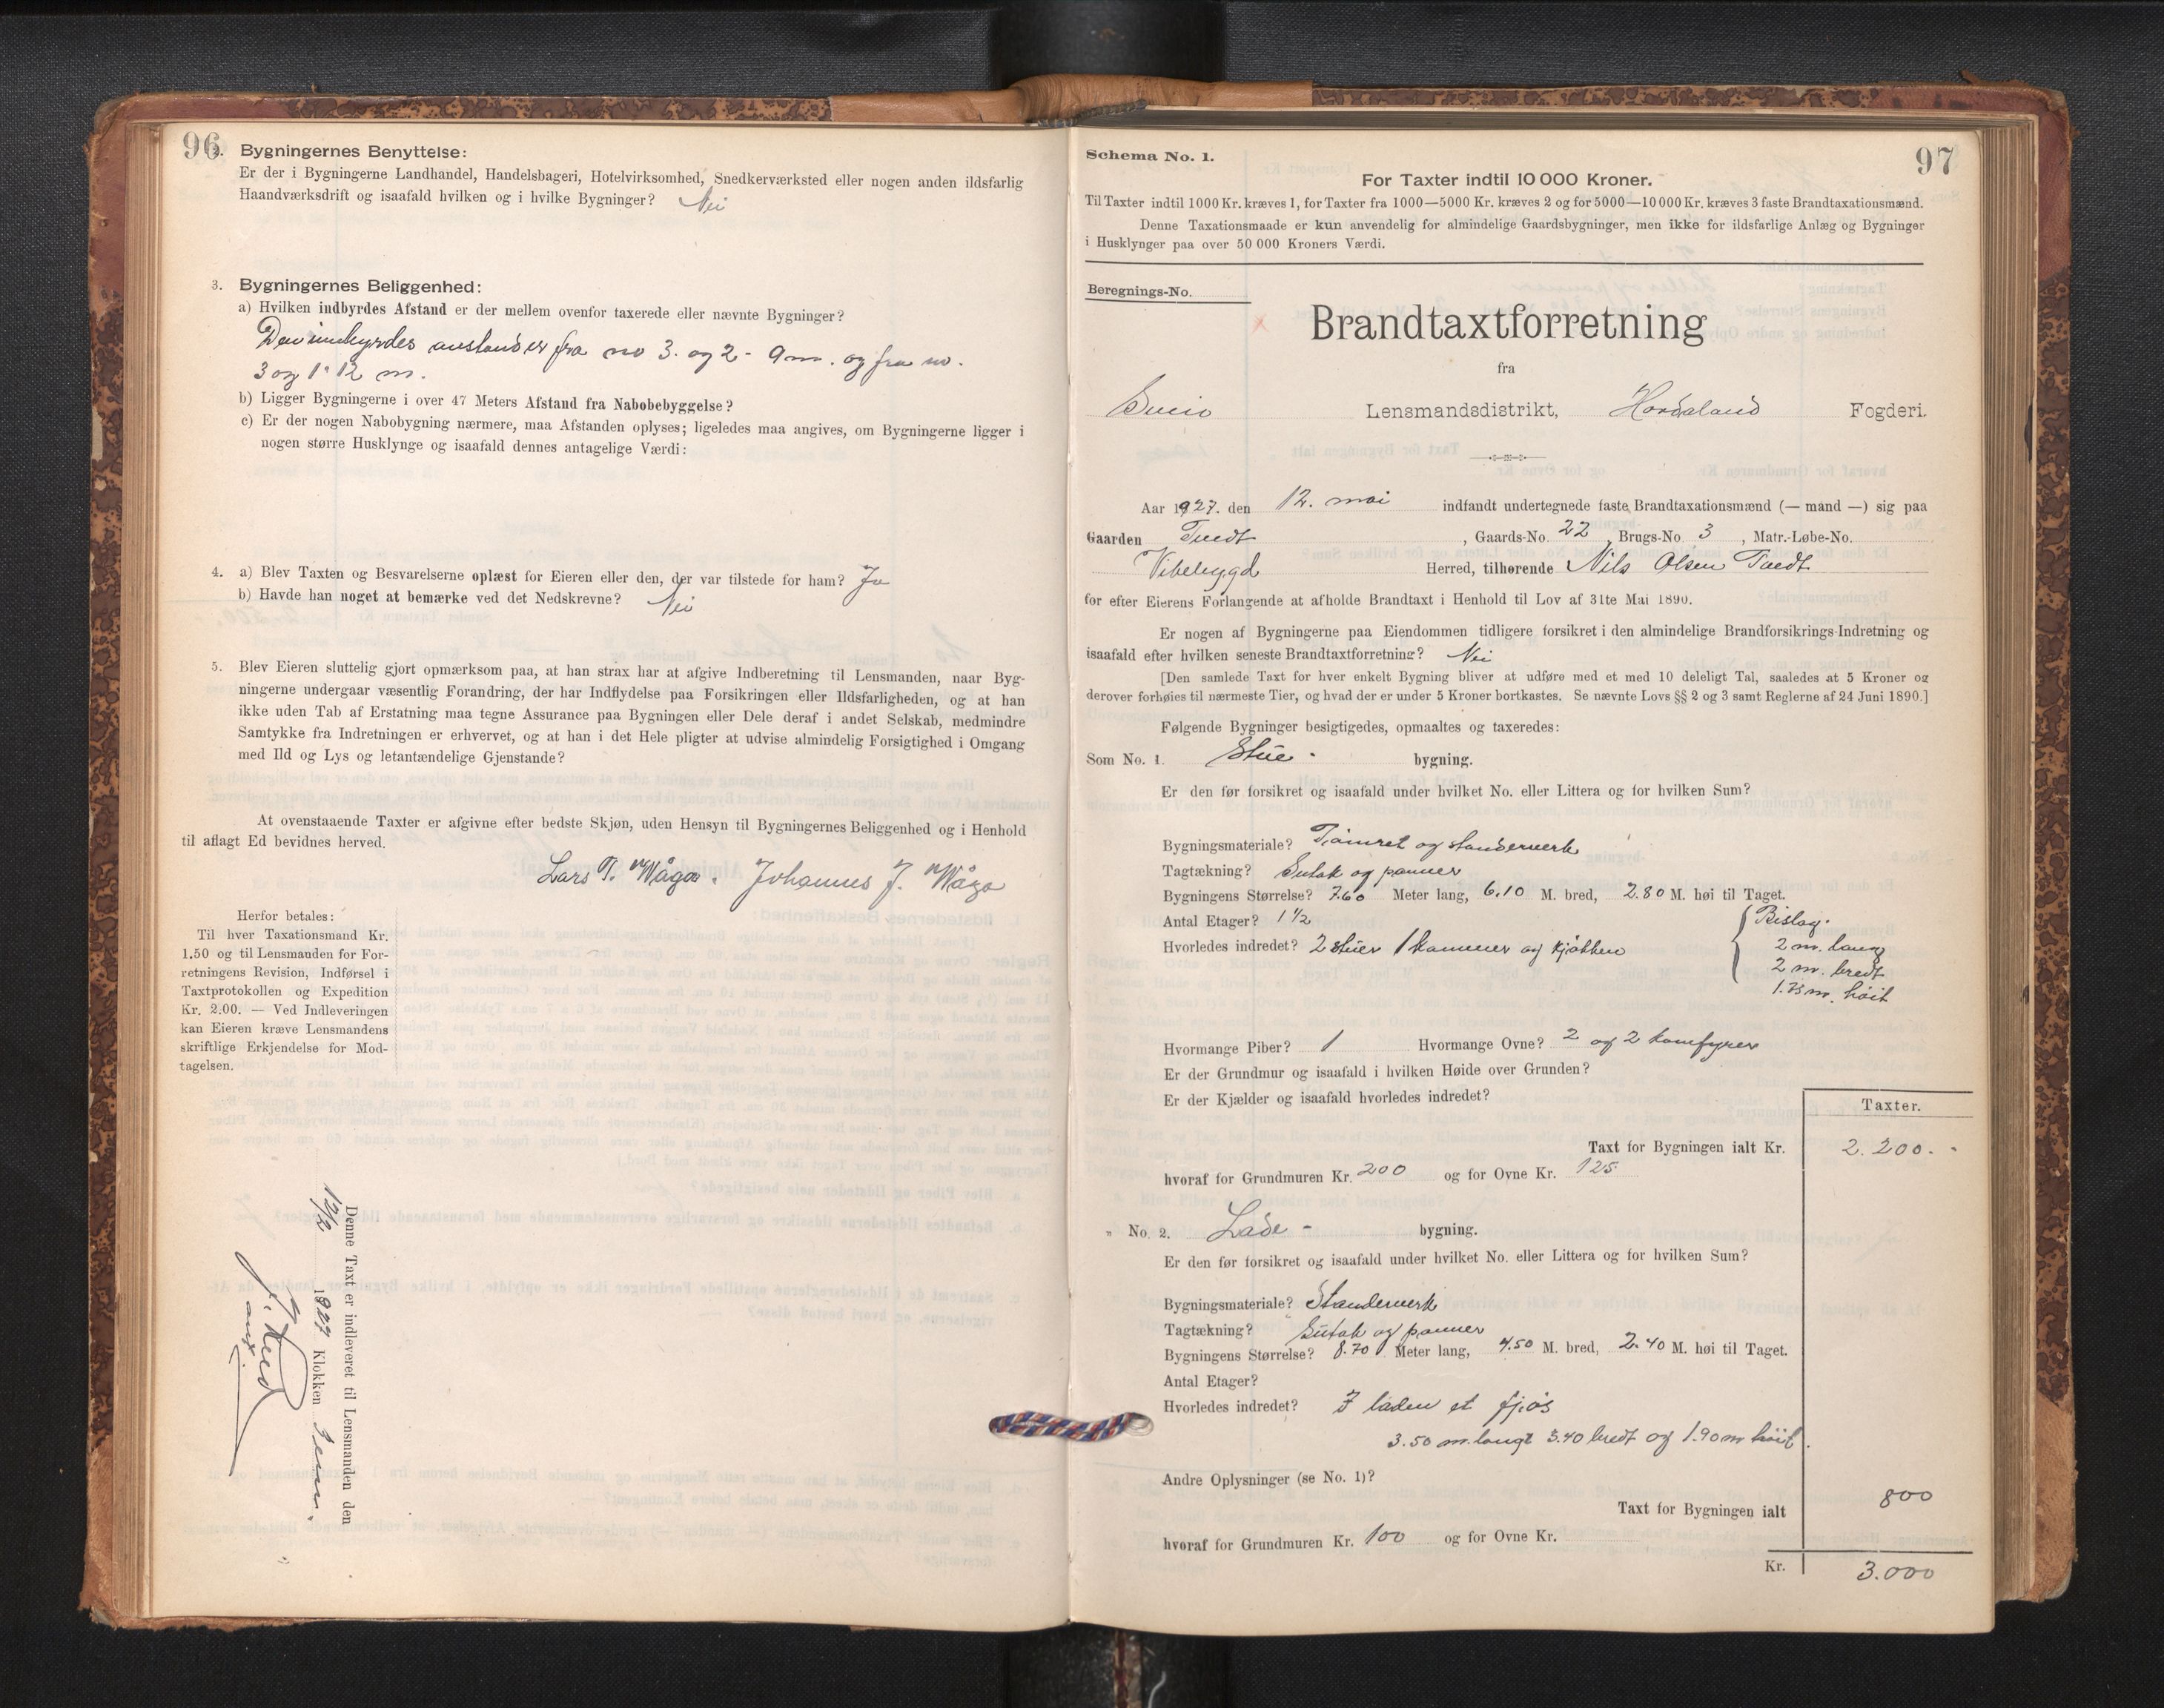 96
2. Bygningernes Benyttelse:
Er der i Bygningerne Landhandel, Handelsbageri, Hotelvirksomhed, Snedkerværksted eller nogen anden ildsfarlig
Haandværksdrift og isaafald hvilken og i hvilke Bygninger? Nei
3. Bygningernes Beliggenhed:
a) Hvilken indbyrdes Afstand er der mellem ovenfor taxerede eller nævnte Bygninger?
Den innbyrdes avstand er fra no 3. og 2 - 9 m. og fra no.
3 og 1 - 12 m.
b) Ligger Bygningerne i over 47 Meters Afstand fra Nabobebyggelse?
c) Er der nogen Nabobygning nærmere, maa Afstanden oplyses; ligeledes maa angives, om Bygningerne ligger i
nogen større Husklynge og isaafald dennes antagelige Værdi:
4. a) Blev Taxten og Besvarelserne oplæst for Eieren eller den, der var tilstede for ham? Ja
b) Havde han noget at bemærke ved det Nedskrevne? Nei
5. Blev Eieren sluttelig gjort opmærksom paa, at han strax har at afgive Indberetning til Lensmanden, naar Byg-
ningerne undergaar væsentlig Forandring, der har Indflydelse paa Forsikringen eller Ildsfarligheden, og at han
ikke uden Tab af Erstatning maa tegne Assurance paa Bygningen eller Dele deraf i andet Selskab, medmindre
Samtykke fra Indretningen er erhvervet, og at han i det Hele pligter at udvise almindelig Forsigtighed i Omgang
med Ild og Lys og letantændelige Gjenstande?
At ovenstaaende Taxter er afgivne efter bedste Skjøn, uden Hensyn til Bygningernes Beliggenhed og i Henhold
til aflagt Ed bevidnes herved.
Lars T. Våga. Johannes J. Våga
Herfor betales:
Til hver Taxationsmand Kr.
1.50 og til Lensmanden for For-
retningens Revision, Indførsel i
Taxtprotokollen og Expedition
Kr. 2.00. — Ved Indleveringen
kan Eieren kræve Lensmandens
skriftlige Erkjendelse for Mod-
tagelsen.
Denne Taxt er indleveret til Lensmanden den
1927 Klokken
97
Schema No. 1.
For Taxter indtil 10 000 Kroner.
Til Taxter indtil 1000 Kr. kræves 1, for Taxter fra 1000—5000 Kr. kræves 2 og for 5000—10 000 Kr. kræves 3 faste Brandtaxationsmænd.
Denne Taxationsmaade er kun anvendelig for almindelige Gaardsbygninger, men ikke for ildsfarlige Anlæg og Bygninger
i Husklynger paa over 50 000 Kroners Værdi.
Beregnings-No.
Brandtaxtforretning
fra
Sveio Lensmandsdistrikt, Hordaland Fogderi.
Aar 1927. den 12. mai indfandt undertegnede faste Brandtaxationsmænd (— mand —) sig paa
Gaarden Tvedt, Gaards-No. 22, Brugs-No. 3, Matr.-Løbe-No.
Vikebygd Herred, tilhørende Nils Olsen Tvedt
for efter Eierens Forlangende at afholde Brandtaxt i Henhold til Lov af 31te Mai 1890.
Er nogen af Bygningerne paa Eiendommen tidligere forsikret i den almindelige Brandforsikrings-Indretning og
isaafald efter hvilken seneste Brandtaxtforretning? Nei
[Den samlede Taxt for hver enkelt Bygning bliver at udføre med et med 10 deleligt Tal, saaledes at 5 Kroner og
derover forhøies til nærmeste Tier, og hvad der er under 5 Kroner bortkastes. Se nævnte Lovs §§ 2 og 3 samt Reglerne af 24 Juni 1890.]
Følgende Bygninger besigtigedes, opmaaltes og taxeredes:
Som No. 1. Stue - bygning.
Er den før forsikret og isaafald under hvilket No. eller Littera og for hvilken Sum?
Bygningsmateriale? Tømret og standerverk
Tagtækning? Sutak og panner
Bygningens Størrelse? 7.60 Meter lang, 6.10 M. bred, 2.80 M. høi til Taget.
Antal Etager? 1 ½
Hvorledes indredet? 2 stuer 1 kammer og kjøkken
Bislag.
2 m. lang
2 m. bredt
1.75 m. høit
Hvormange Piber? 1 Hvormange Ovne? 2 og 2 komfyrer
Er der Grundmur og isaafald i hvilken Høide over Grunden?
Er der Kjælder og isaafald hvorledes indredet?
Taxter.
Taxt for Bygningen ialt Kr. 2.200.-
hvoraf for Grundmuren Kr. 200 og for Ovne Kr. 125
" No. 2. Lade - bygning.
Er den før forsikret og isaafald under hvilket No. eller Littera og for hvilken Sum?
Bygningsmateriale? Standerverk
Tagtækning? Sutak og panner
Bygningens Størrelse? 8.70 Meter lang, 4.50 M. bred, 2.40 M. høi til Taget.
Antal Etager?
Hvorledes indredet? I laden et fjøs
3.50 m. langt 3.40 bredt og 1.90 m høit.
Andre Oplysninger (se No. 1)?
Taxt for Bygningen ialt 800
hvoraf for Grundmuren Kr. 100 og for Ovne Kr.
Kr. 3.000